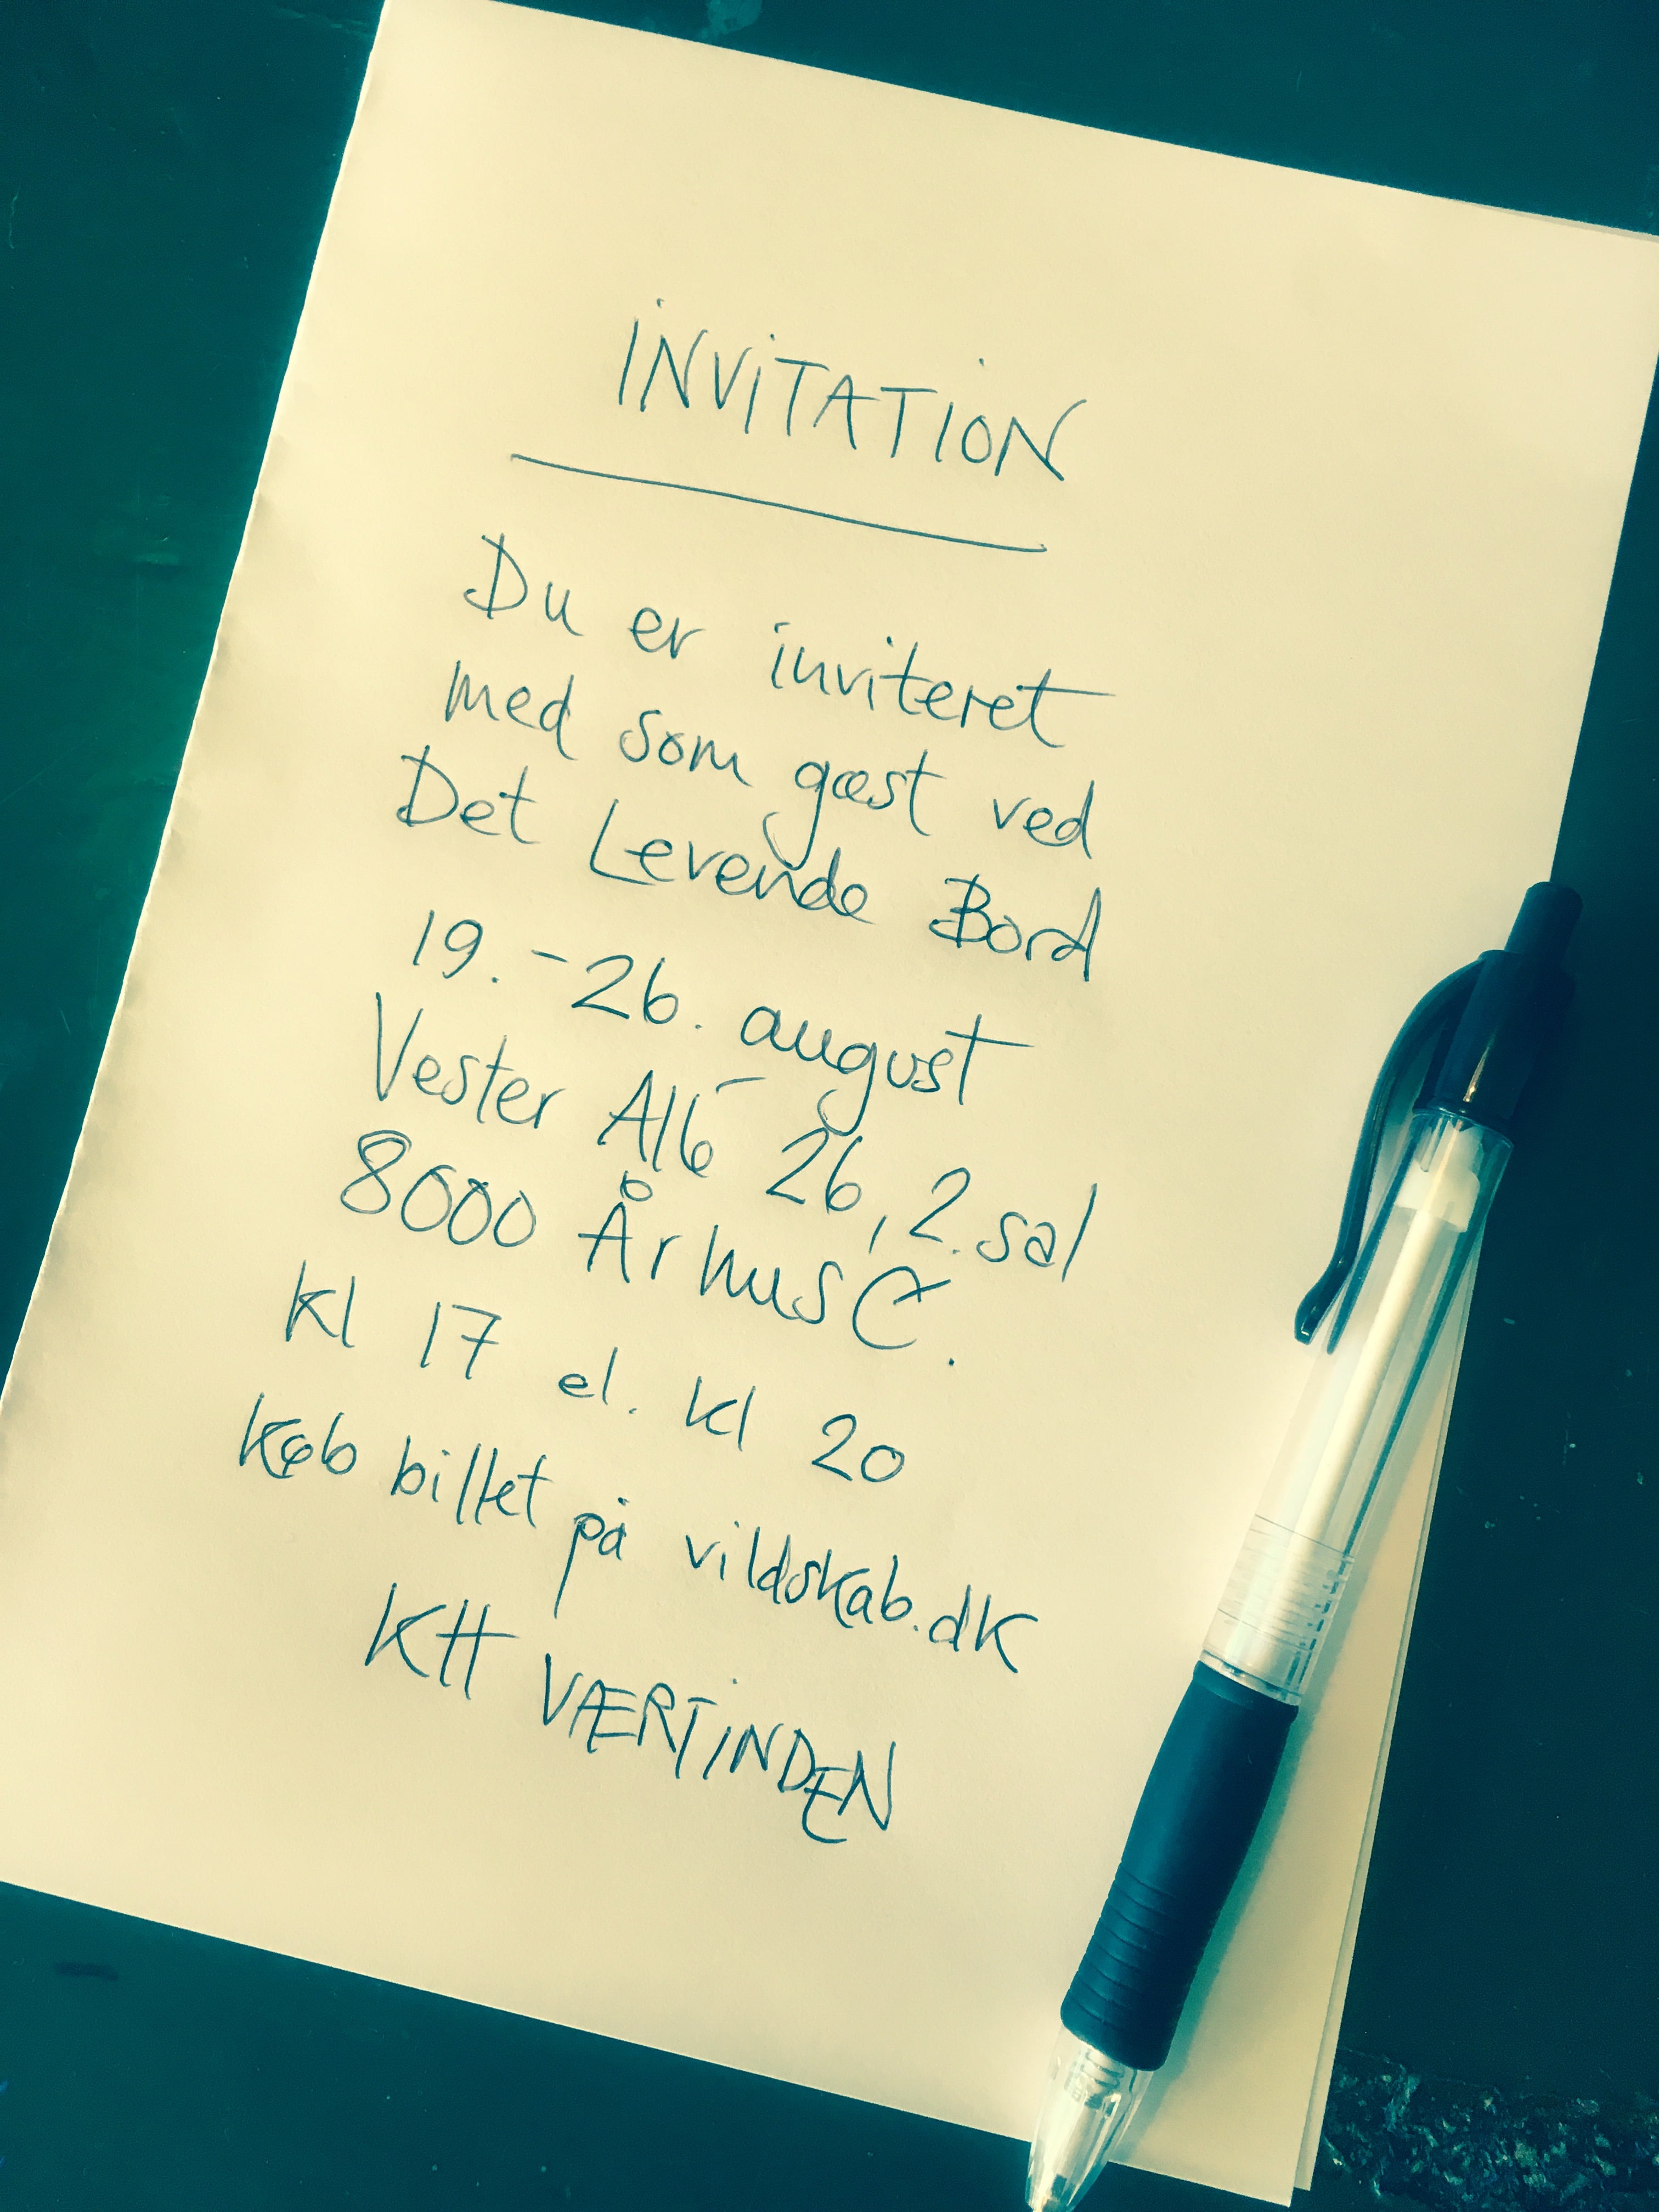 INVITATION
Du er inviteret
med som gæst ved
Det Levende Bord
19.-26. august
Vester Allé 26, 2. sal
8000 Århus C.
kl 17 el. kl 20
Køb billet på vildskab.dk
KH VÆRTINDEN